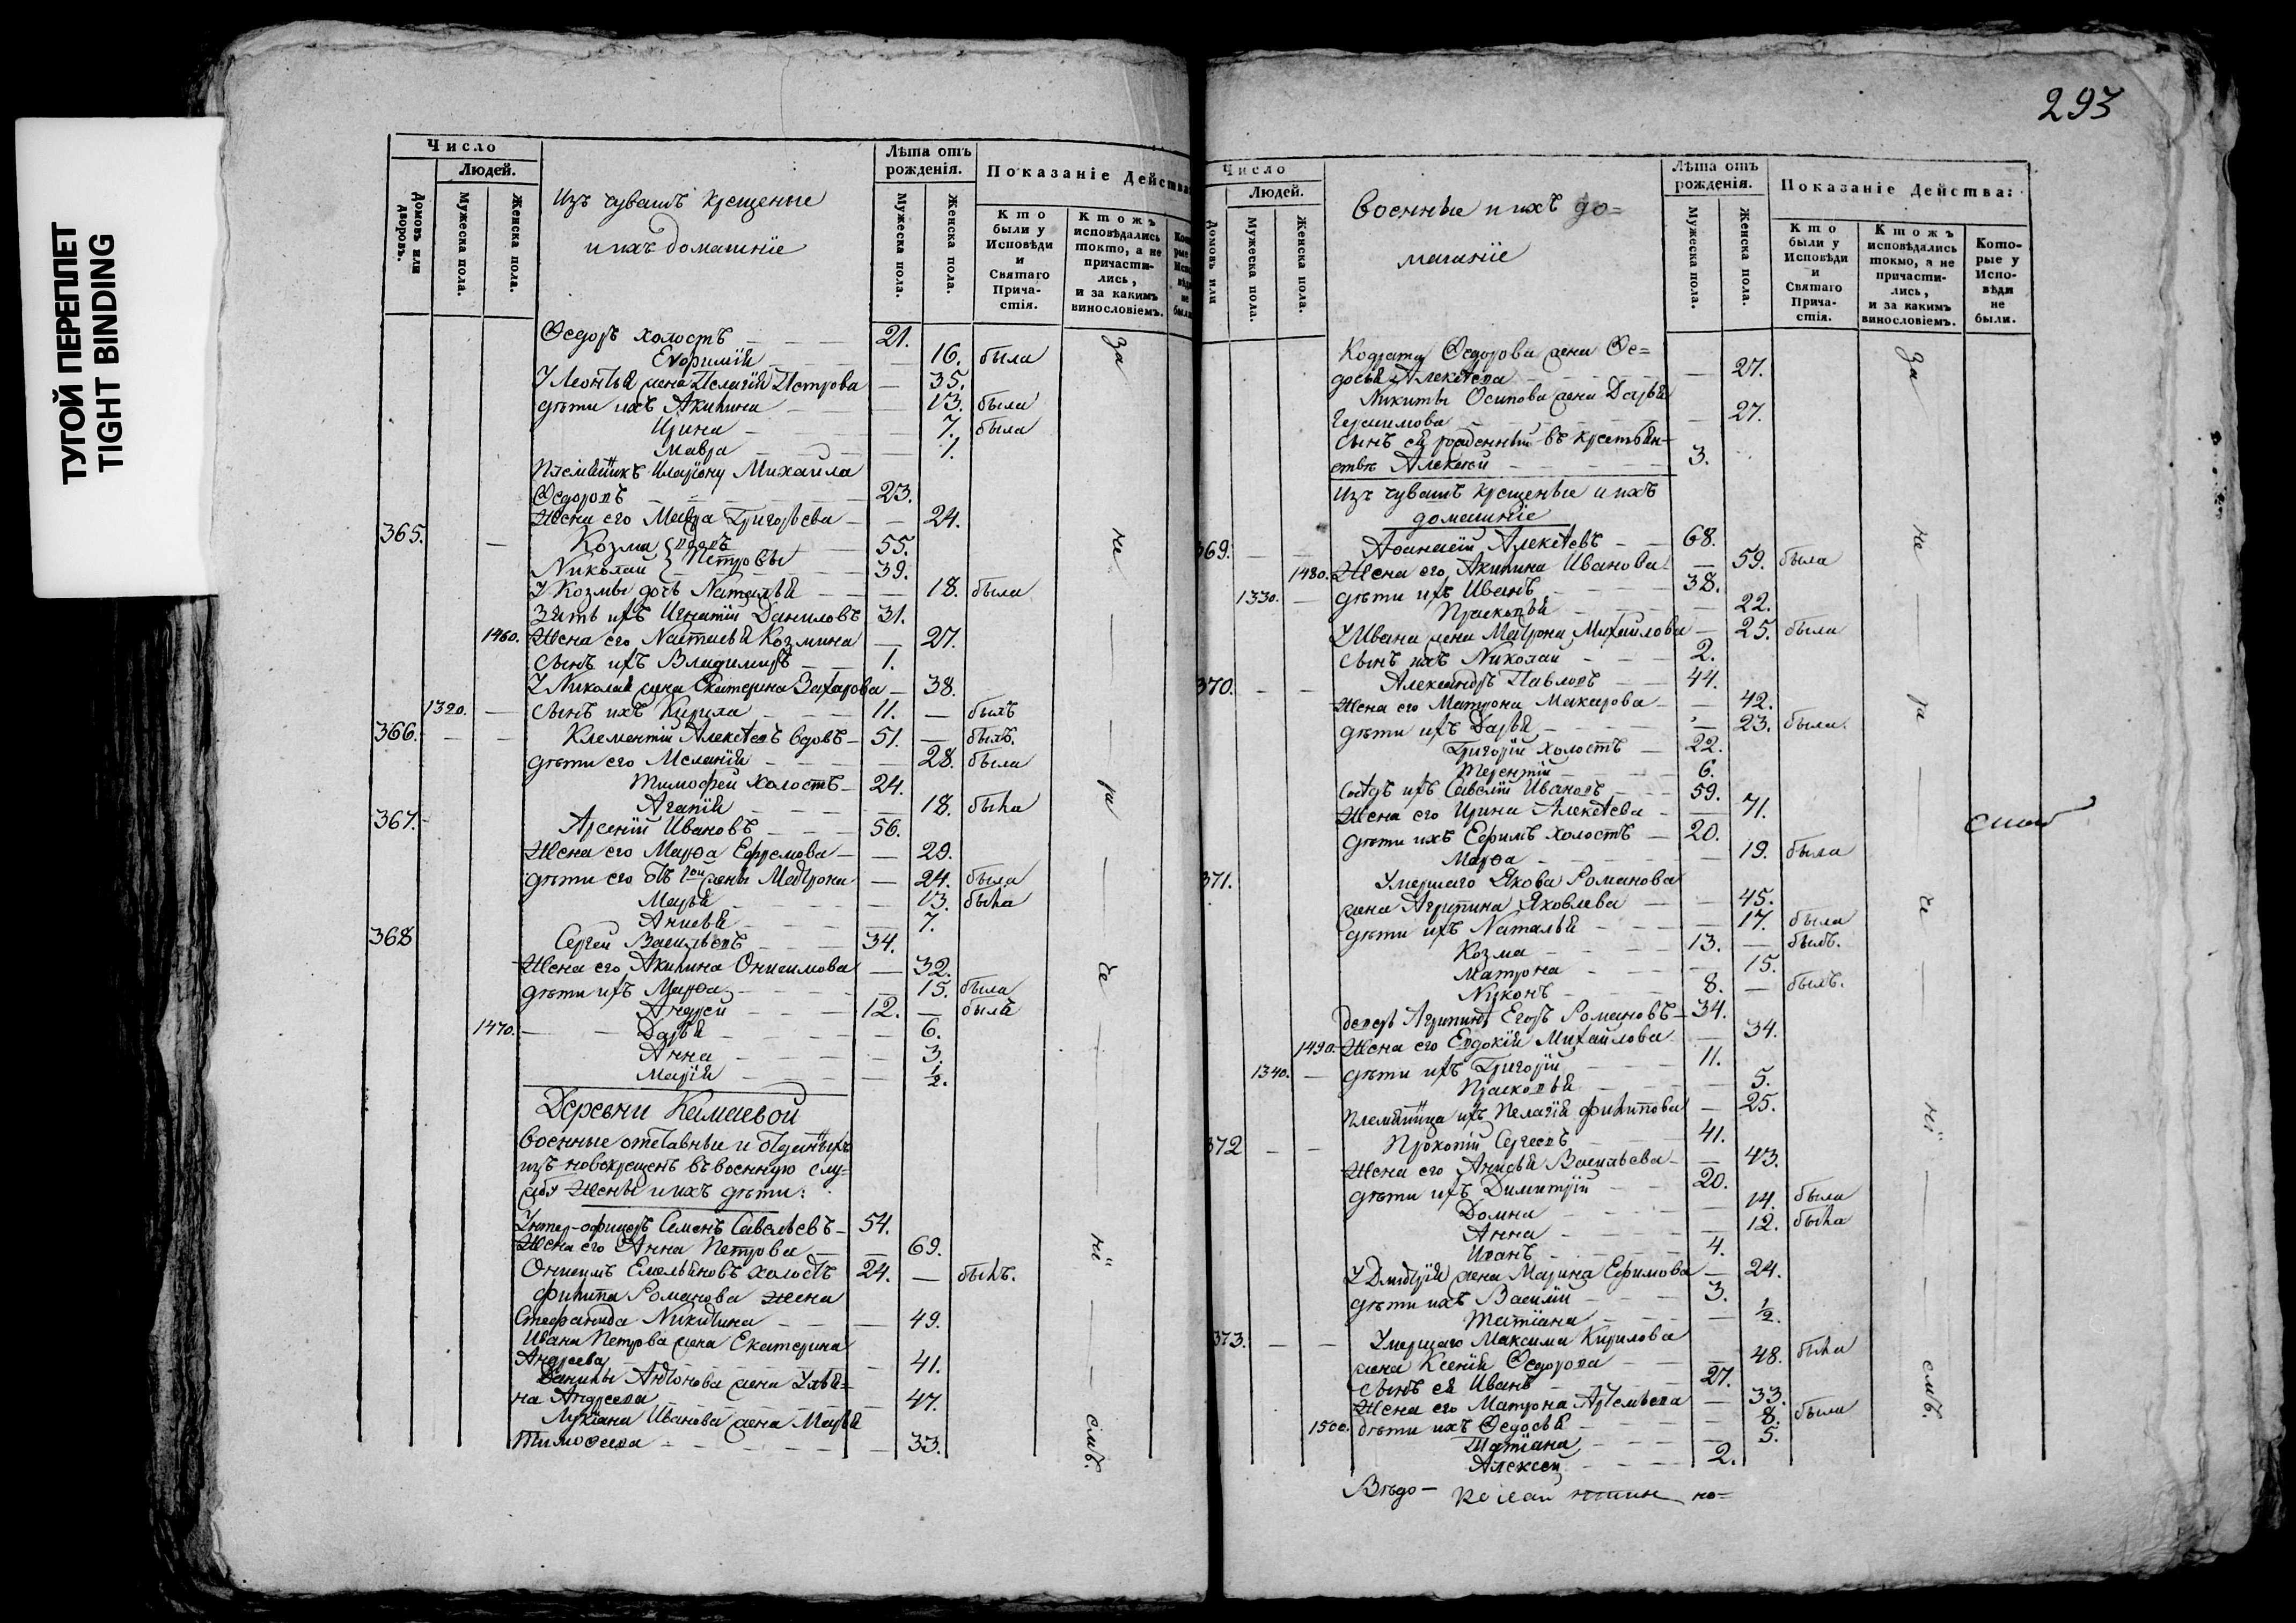 ТУГОЙ ПЕРЕПЛЕТ
TIGHT BINDING
Число
Людей.
Домовъ или дворовъ.
Мужеска пола.
Женска пола.
Изъ чувашъ крещеные
и ихъ домашніе
Лѣта отъ рожденія.
Мужеска пола.
Женска пола.
Показаніе Действа
Кто были у Исповѣди и Святаго Прича-стія.
Ктожъ исповѣдались токмо, а не причасти-лись, и за какимъ винословіемъ.
Ѳедоръ холостъ 21.
Евфимія 16. была
У Леонтья жена Пелагія Петрова 35.
дѣти ихъ Акилина 13. была
Ирина 7. была
Мавра 1.
Племянникъ Иларіону Михаила
Ѳедоровъ 23.
Жена его Мавра Григорьева 24.
365. Козма вдовъ 55.
Николай Петровы 39.
У Козмы дочь Наталья 18. была
Зять ихъ Игнатій Даниловъ 31.
1460. Жена его Настасья Козмина 27.
сынъ ихъ Владимиръ 1.
У Николая жена Екатерина Захарова 38.
1320. сынъ ихъ Кирила 11. былъ
366. Клементій Алексѣевъ вдовъ 51. былъ.
дѣти его Меланія 28. была
Тимофей холостъ 24.
Агапія 18. была
367. Арсеній Ивановъ 56.
Жена его Марѳа Ефремова 29.
дѣти его отъ 1ой жены Матрона 24. была
Марья 13. была
Анисья 7.
368 Сергей Васильевъ 34.
Жена его Акилина Онисимова 32.
дѣти ихъ Марѳа 15. была
Андрей 12. былъ
1470. Дарья 6.
Анна 3.
Марія 1/2.
Деревни Камаевой
военные отставные и отданныхъ
изъ новокрещенъ въ военную слу=
жбу жены и ихъ дѣти:
Унтер-офицеръ Семенъ Савельевъ 54.
Жена его Анна Петрова 69.
Онисимъ Емельяновъ холостъ 24. былъ.
Филипа Романова жена
Стефанида Никитина 49.
Ивана Петрова жена Екатерина
Андреева 41.
Данилы Антонова жена Улья=
на Андреева 47.
Лукіана Иванова жена Марья
Тимоѳеева 33.
за не
293
Число
Людей.
Домовъ или
Мужеска пола.
Женска пола.
Военные и ихъ до=
машніе
Лѣта отъ рожденія.
Мужеска пола.
Женска пола.
Показаніе Действа:
Кто были у Исповѣди и Святаго Прича-стія.
Ктожъ исповѣдались токмо, а не причасти-лись, и за какимъ винословіемъ.
Кото-рые у Испо-вѣди не были.
Кодрата Ѳедорова жена Ѳе=
досья Алексѣева 27.
Никиты Осипова жена Дарья
Герасимова 27.
сынъ ея рожденный въ крестьян-
ствѣ Алексей 3.
Изъ чувашъ крещеные и ихъ
домашніе
369. Аѳанасій Алексѣевъ 68.
1480. Жена его Акилина Иванова 59. была
1330. дѣти ихъ Иванъ 38.
Прасковья 22.
У Ивана жена Матрона Михайлова 25. была
сынъ ихъ Николай 2.
370. Александръ Павловъ 44.
Жена его Матрона Макарова 42.
дѣти ихъ Дарья 23. была.
Григорій холостъ 22.
Терентій 6.
Сосѣдъ ихъ Савелій Ивановъ 59.
Жена его Ирина Алексѣева 71.
дѣти ихъ Ефимъ холостъ 20.
Марѳа 19. была
371. Умершаго Якова Романова
жена Агрипина Яковлева 45.
дѣти ихъ Наталья 17. была
Козма 13. былъ.
Матрона 15.
Никонъ 8. былъ.
деверь Агрипины Егоръ Романовъ 34.
1490. Жена его Евдокія Михайлова 34.
1340. дѣти ихъ Григорій 11.
Прасковья 5.
Племянница ихъ Пелагія Филипова 25.
372 Прокопій Сергеевъ 41.
Жена его Анисья Васильева 43.
дѣти ихъ Димитрій 20.
Домна 14. была
Анна 12. была
Иванъ 4.
У Дмитрія жена Марина Ефимова 24.
дѣти ихъ Василій 3.
Татіана 1/2.
373. Умершаго Максима Кирилова
жена Ксенія Ѳедорова 48. была
сынъ ея Иванъ 27.
Жена его Матрона Артемьева 33.
1500. дѣти ихъ Ѳедосья 8. была
Татіана 5.
Алексей 2.
за не